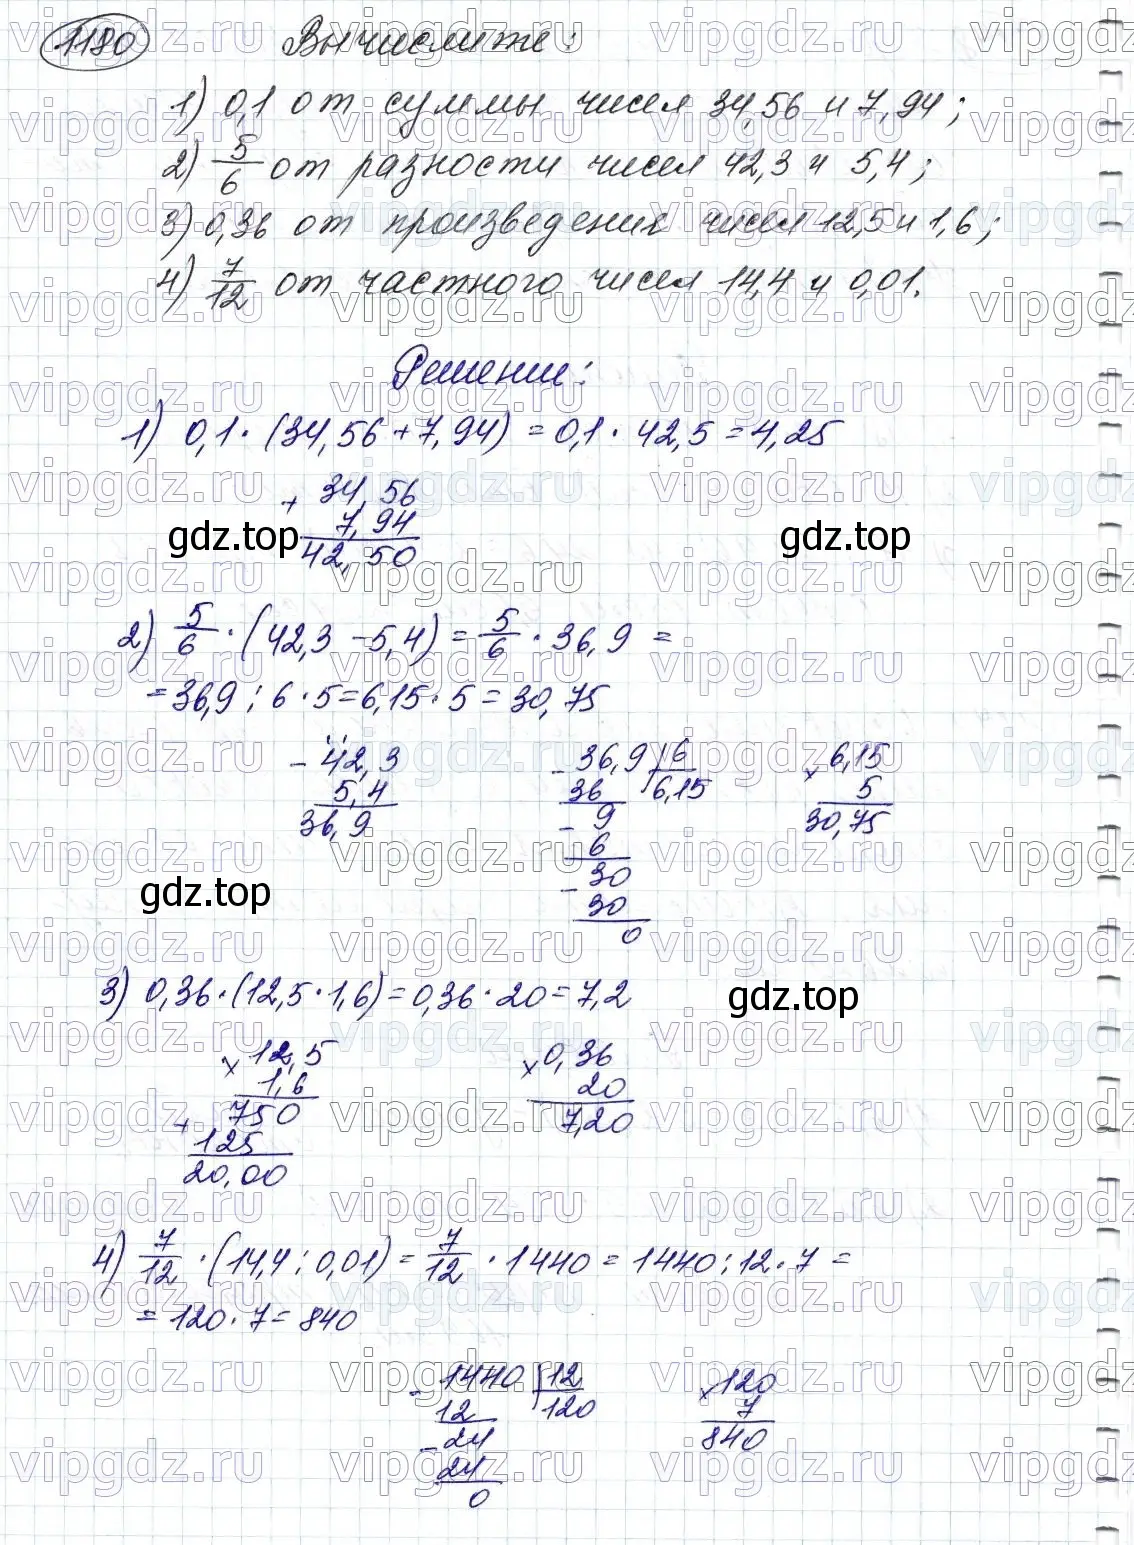 1180 Вычислите:
1) 0,1 от суммы чисел 34,56 и 7,94;
2) 5/6 от разности чисел 42,3 и 5,4;
3) 0,36 от произведения чисел 12,5 и 1,6;
4) 7/12 от частного чисел 14,4 и 0,01.
Решение:
1) 0,1 · (34,56 + 7,94) = 0,1 · 42,5 = 4,25
+ 34,56
7,94
42,50
gdz.top gdz.top
2) 5/6 · (42,3 - 5,4) = 5/6 · 36,9 =
= 36,9 : 6 · 5 = 6,15 · 5 = 30,75
- 42,3
5,4
36,9
- 36,9 | 6
36 6,15
- 9
6
- 30
30
0
× 6,15
5
30,75
gdz.top
3) 0,36 · (12,5 · 1,6) = 0,36 · 20 = 7,2
gdz.top
× 12,5
1,6
750
+
125
20,00
× 0,36
20
7,20
4) 7/12 · (14,4 : 0,01) = 7/12 · 1440 = 1440 : 12 · 7 =
= 120 · 7 = 840
- 1440 | 12
12 120
- 24
24
0
× 120
7
840
vipgdz.ru